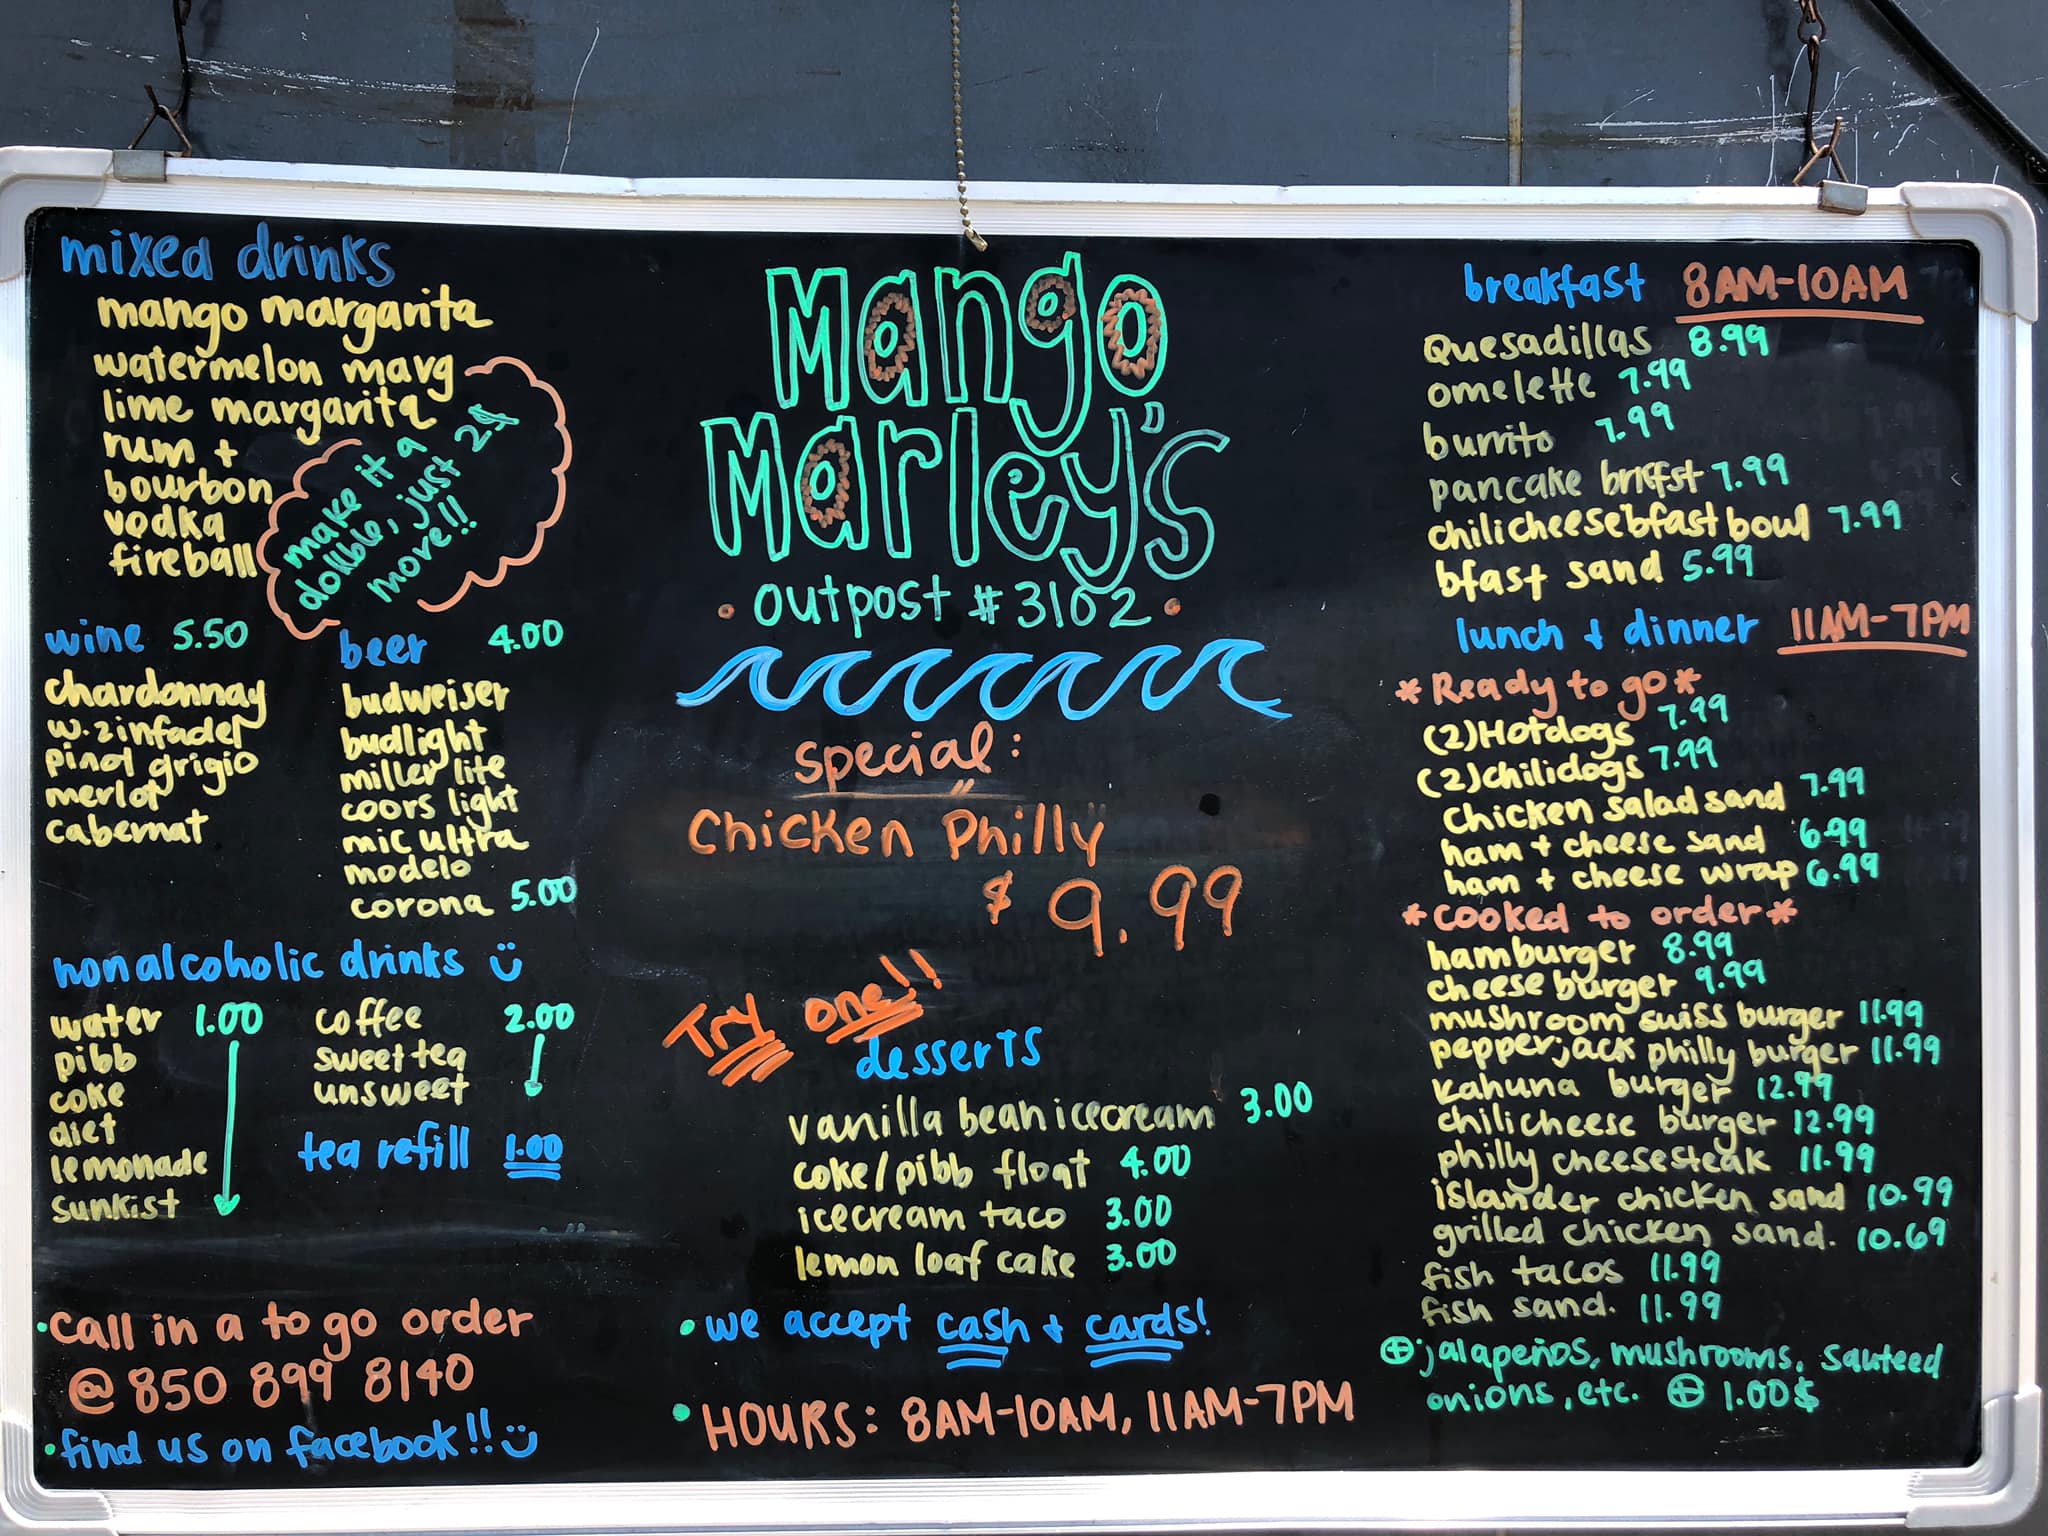 mixed drinks
mango margarita
watermelon marg
lime margarita
rum +
bourbon
vodka
fireball
make it a
double, just 2$
more!!
wine 5.50
chardonnay
w.zinfadel
pinot grigio
merlot
cabernat
beer 4.00
budweiser
budlight
miller lite
coors light
mic ultra
modelo
corona 5.00
nonalcoholic drinks
water 1.00
pibb
coke
diet
lemonade
sunkist
coffee 2.00
sweet tea
unsweet
tea refill 1.00
• call in a to go order
@ 850 899 8140
• find us on facebook!!
Mango
Marley's
• outpost #3102 •
special:
Chicken Philly
$9.99
Try one!!
desserts
vanilla bean icecream 3.00
coke/pibb float 4.00
icecream taco 3.00
lemon loaf cake 3.00
• we accept cash + cards!
• HOURS: 8AM-10AM, 11AM-7PM
breakfast 8AM-10AM
Quesadillas 8.99
omelette 7.99
burrito 7.99
pancake brkfst 7.99
chilicheese bfast bowl 7.99
bfast sand 5.99
lunch + dinner 11AM-7PM
*Ready to go*
(2)Hotdogs 7.99
(2)chilidogs 7.99
Chicken salad sand 7.99
ham + cheese sand 6.99
ham + cheese wrap 6.99
*cooked to order*
hamburger 8.99
cheese burger 9.99
mushroom swiss burger 11.99
pepperjack philly burger 11.99
kahuna burger 12.99
chilicheese burger 12.99
philly cheesesteak 11.99
islander chicken sand 10.99
grilled chicken sand. 10.69
fish tacos 11.99
fish sand. 11.99
⊕ jalapeños, mushrooms, sauteed
onions, etc. ⊕ 1.00$